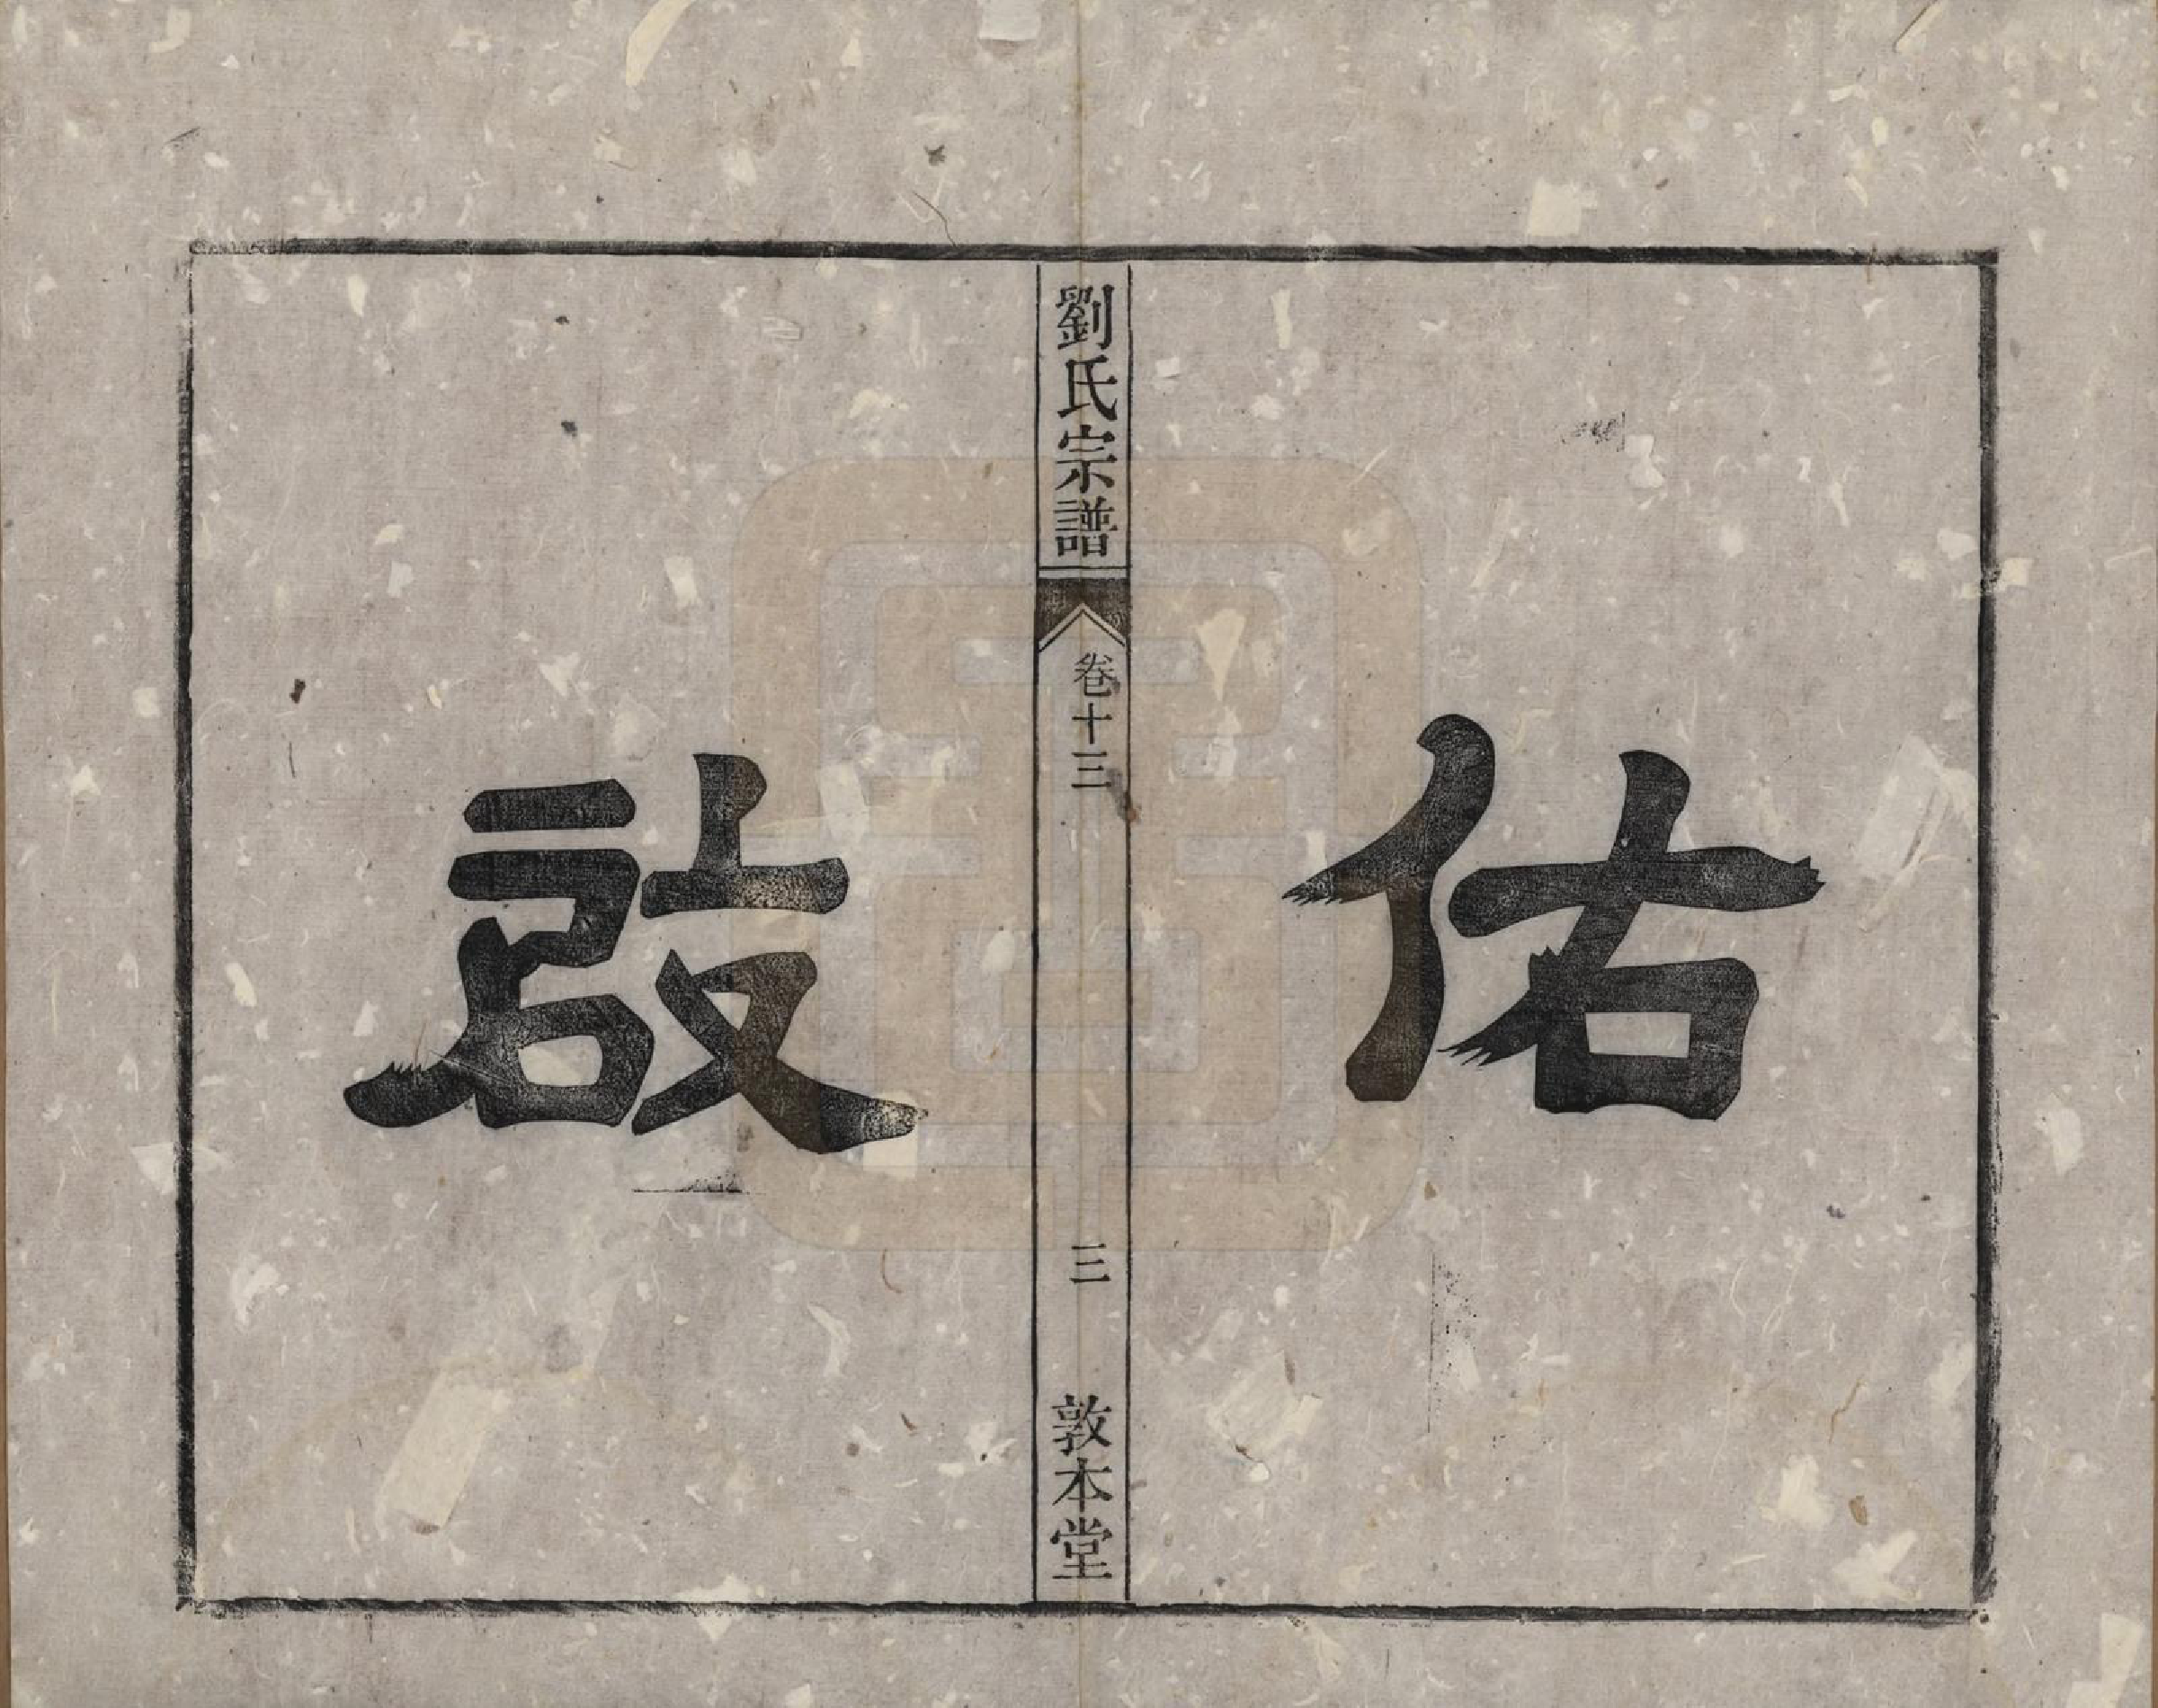 佑
劉氏宗譜
卷十三
三
敦本堂
啟